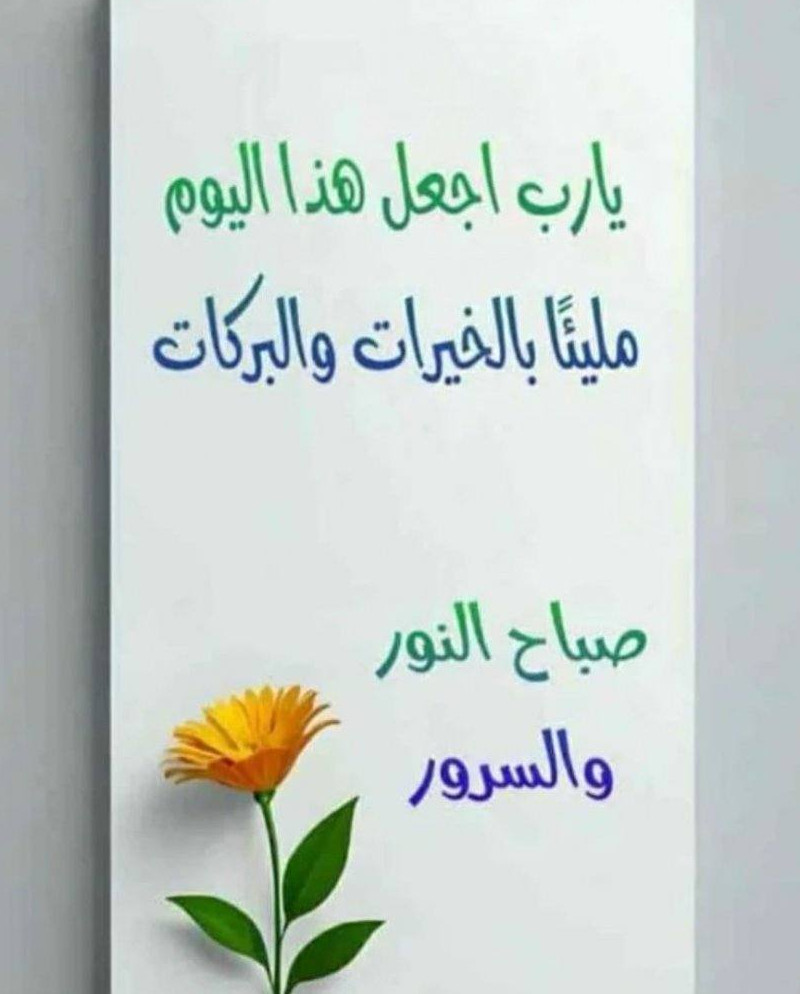 يارب اجعل هذا اليوم
مليئًا بالخيرات والبركات
صباح النور
والسرور